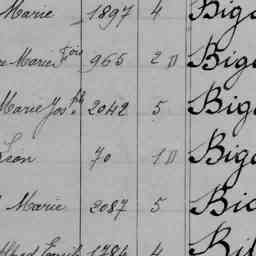 Marie 1897 4 Big
Marie Fois 965 2 D Big
Marie Jos ph 2042 5 Big
Léon 70 1 D Big
Marie 2087 5 Big
1784 4